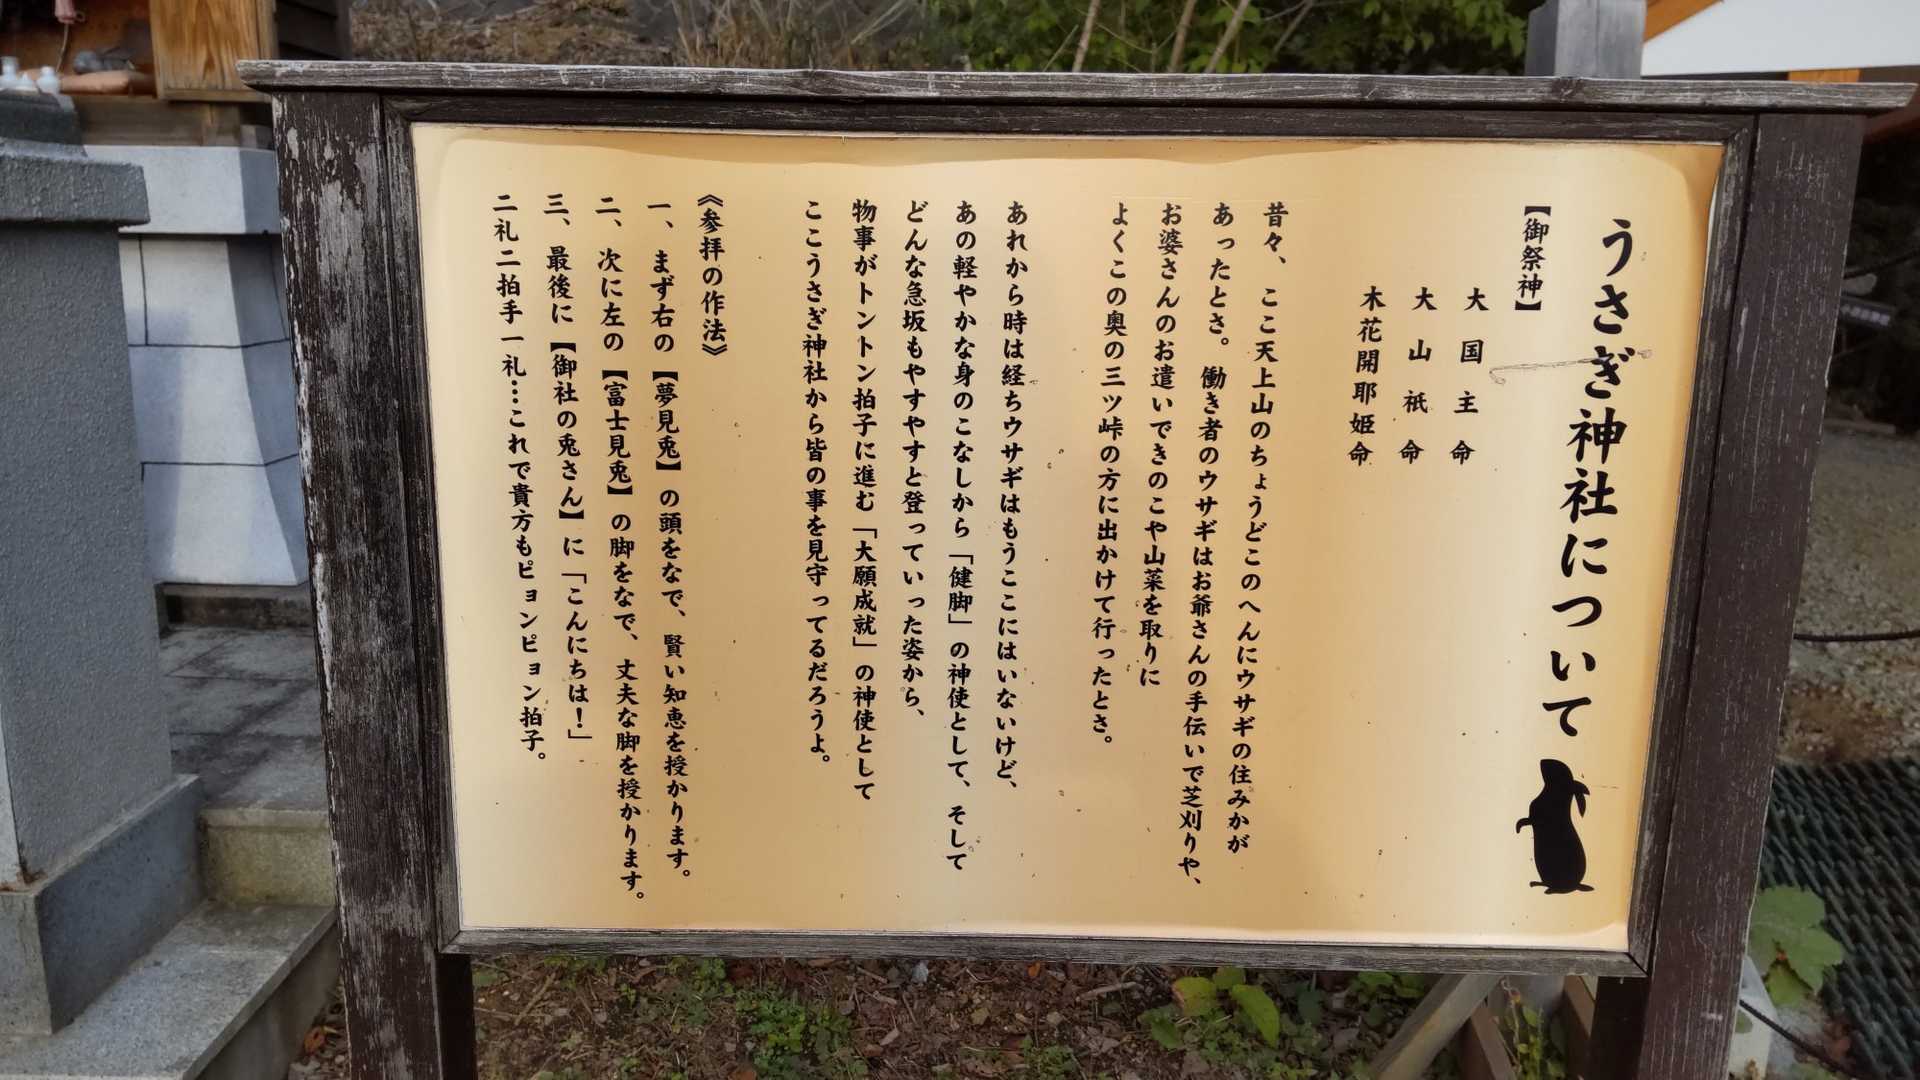 うさぎ神社について
【御祭神】
大国主命
大山祇命
木花開耶姫命
昔々、ここ天上山のちょうどこのへんにウサギの住みかが
あったとさ。働き者のウサギはお爺さんの手伝いで芝刈りや、
お婆さんのお遣いできのこや山菜を取りに
よくこの奥の三ツ峠の方に出かけて行ったとさ。
あれから時は経ちウサギはもうここにはいないけど、
あの軽やかな身のこなしから「健脚」の神使として、そして
どんな急坂もやすやすと登っていった姿から、
物事がトントン拍子に進む「大願成就」の神使として
ここうさぎ神社から皆の事を見守ってるだろうよ。
《参拝の作法》
一、まず右の【夢見兎】の頭をなで、賢い知恵を授かります。
二、次に左の【富士見兎】の脚をなで、丈夫な脚を授かります。
三、最後に【御社の兎さん】に「こんにちは！」
二礼二拍手一礼…これで貴方もピョンピョン拍子。